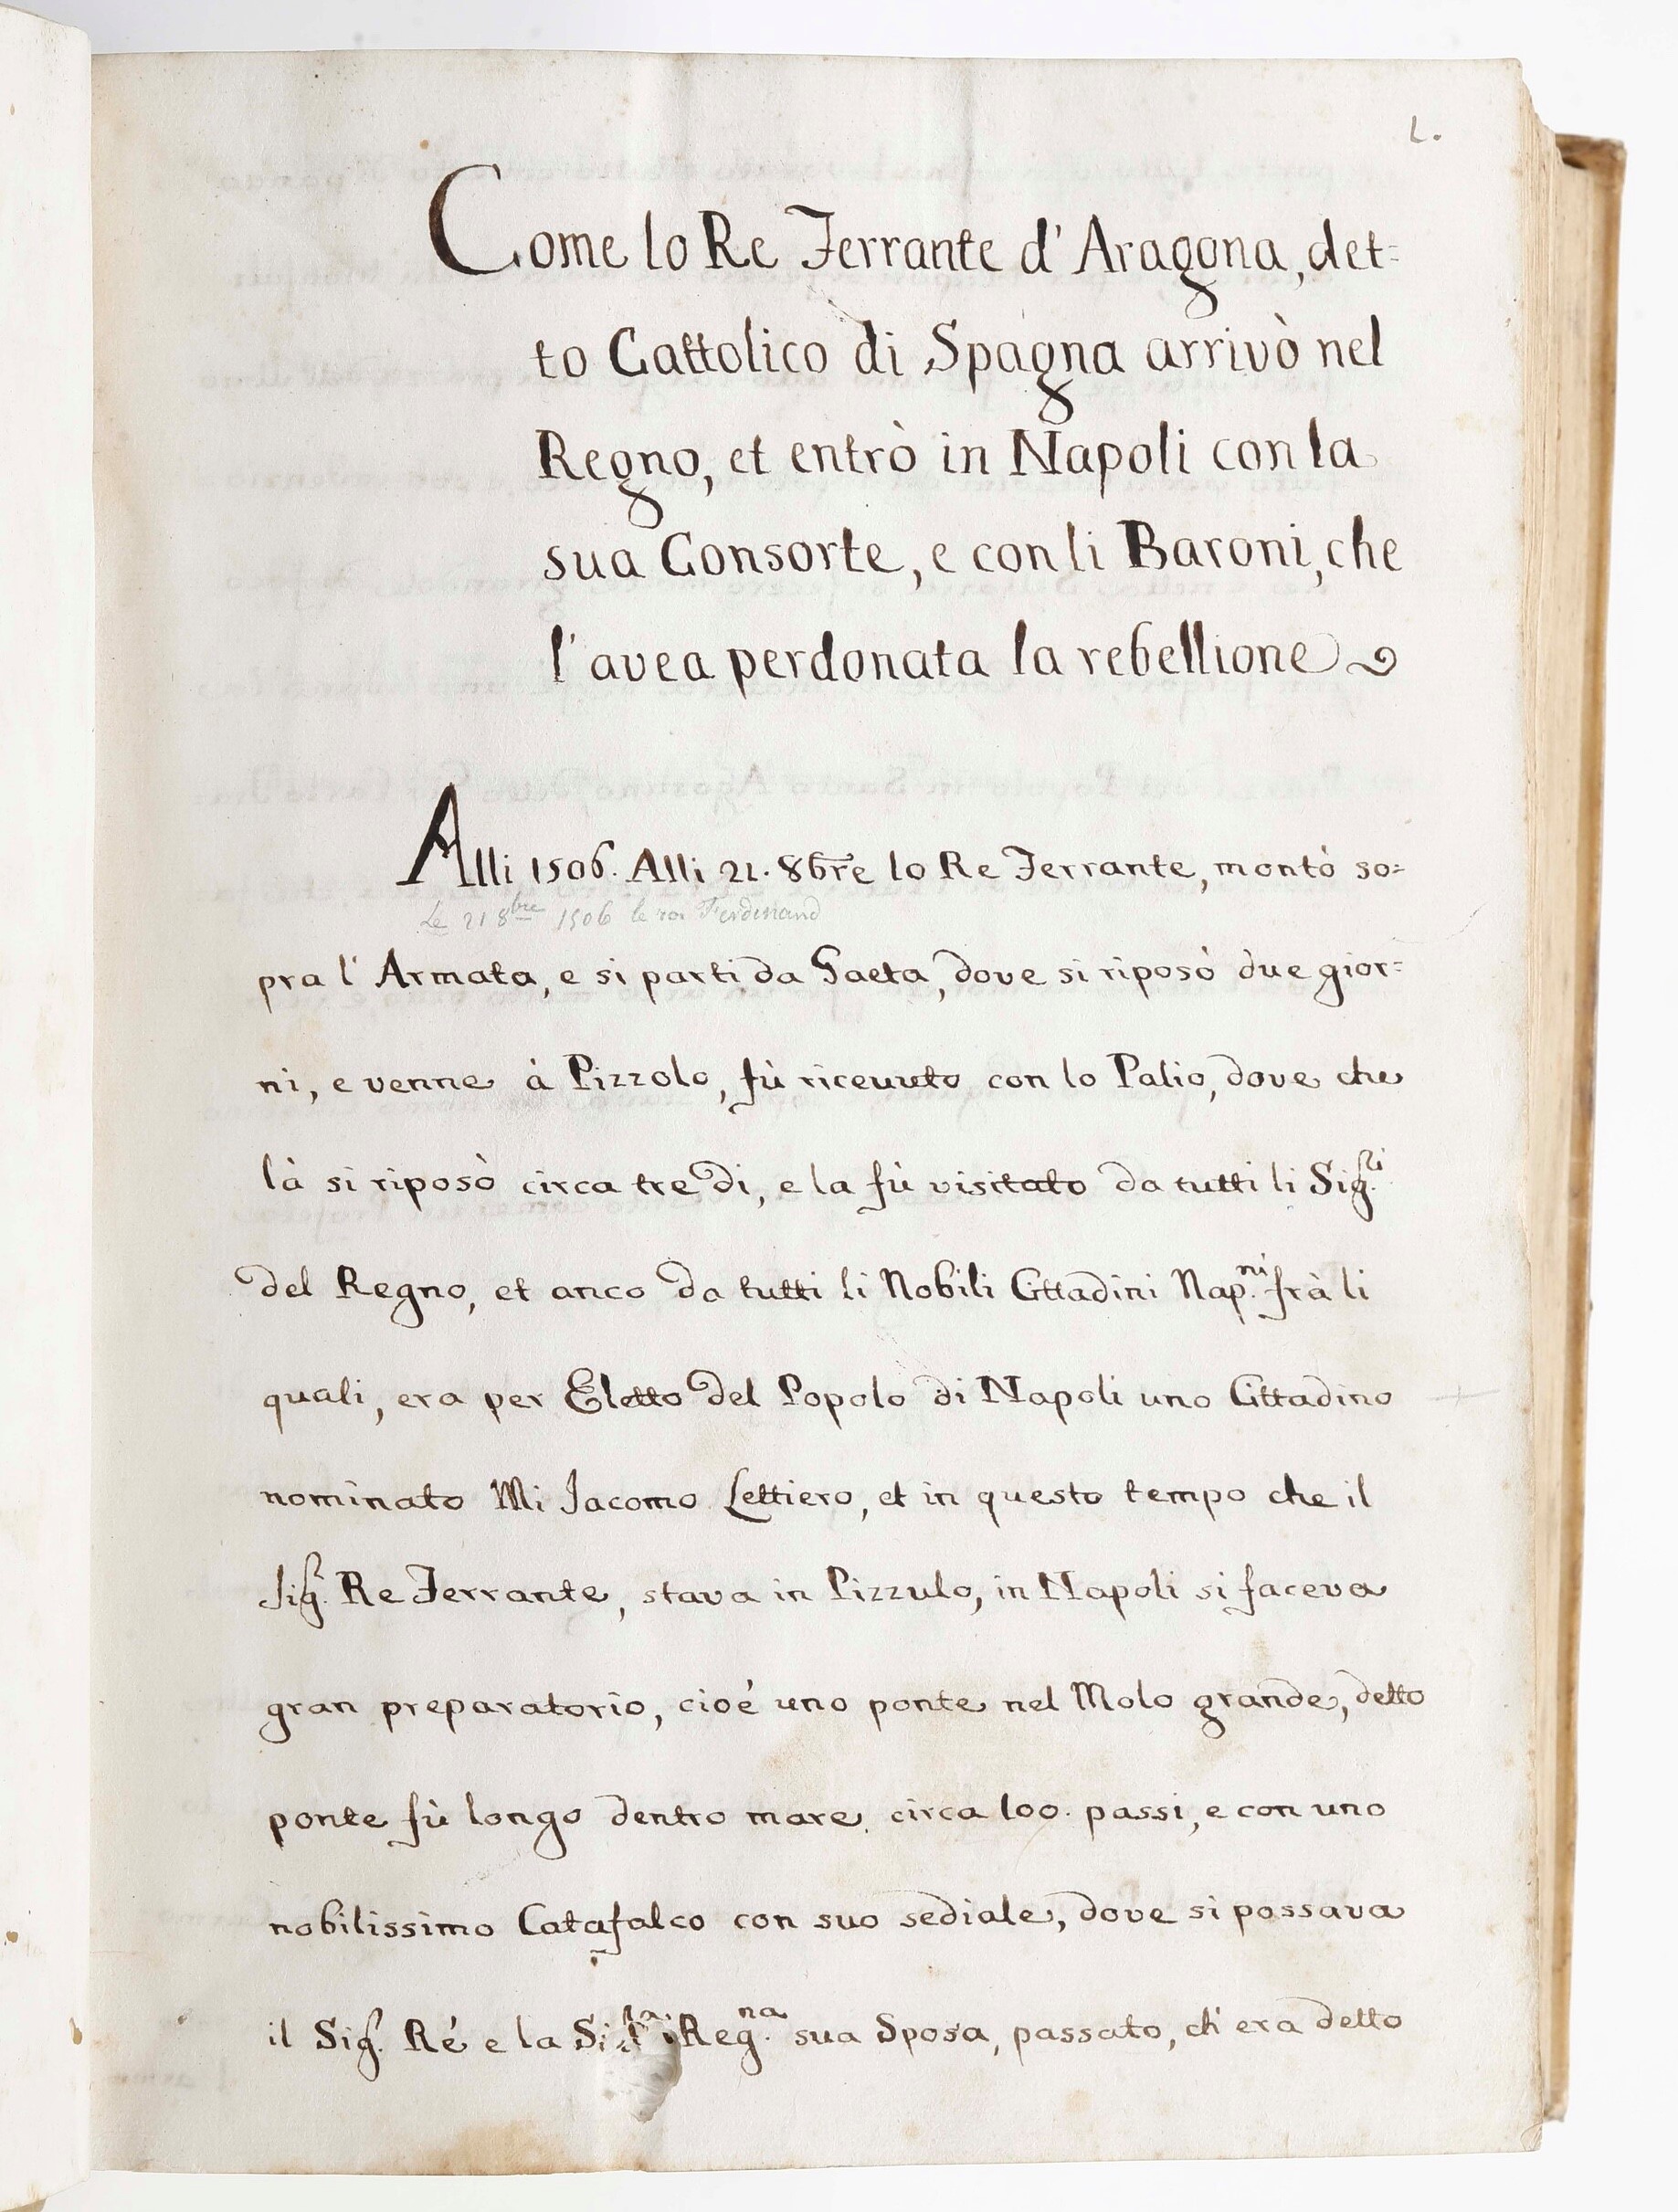 1.
Come lo Re Ferrante d'Aragona, det=
to Cattolico di Spagna arrivò nel
Regno, et entrò in Napoli con la
sua Consorte, e con li Baroni, che
l'avea perdonata la rebellione
Alli 1506. Alli 21. 8bre lo Re Ferrante, montò so=
Le 21 8bre 1506 le roi Ferdinand
pra l'Armata, e si parti da Gaeta, dove si riposò due gior=
ni, e venne à Pizzolo, fù riceuuto con lo Palio, dove che
là si riposò circa tre di, e la fù visitato da tutti li Sig.ri
del Regno, et anco da tutti li Nobili Cittadini Nap.ni frà li
quali, era per Eletto del Popolo di Napoli uno Cittadino
nominato Mi Jacomo Lettiero, et in questo tempo che il
Sig.r Re Ferrante, stava in Pizzulo, in Napoli si faceva
gran preparatorio, cioé uno ponte nel Molo grande, detto
ponte fù longo dentro mare circa 100. passi, e con uno
nobilissimo Catafalco con suo sediale, dove si possava
il Sig.r Ré e la Reg.na sua Sposa, passato, ch'era detto